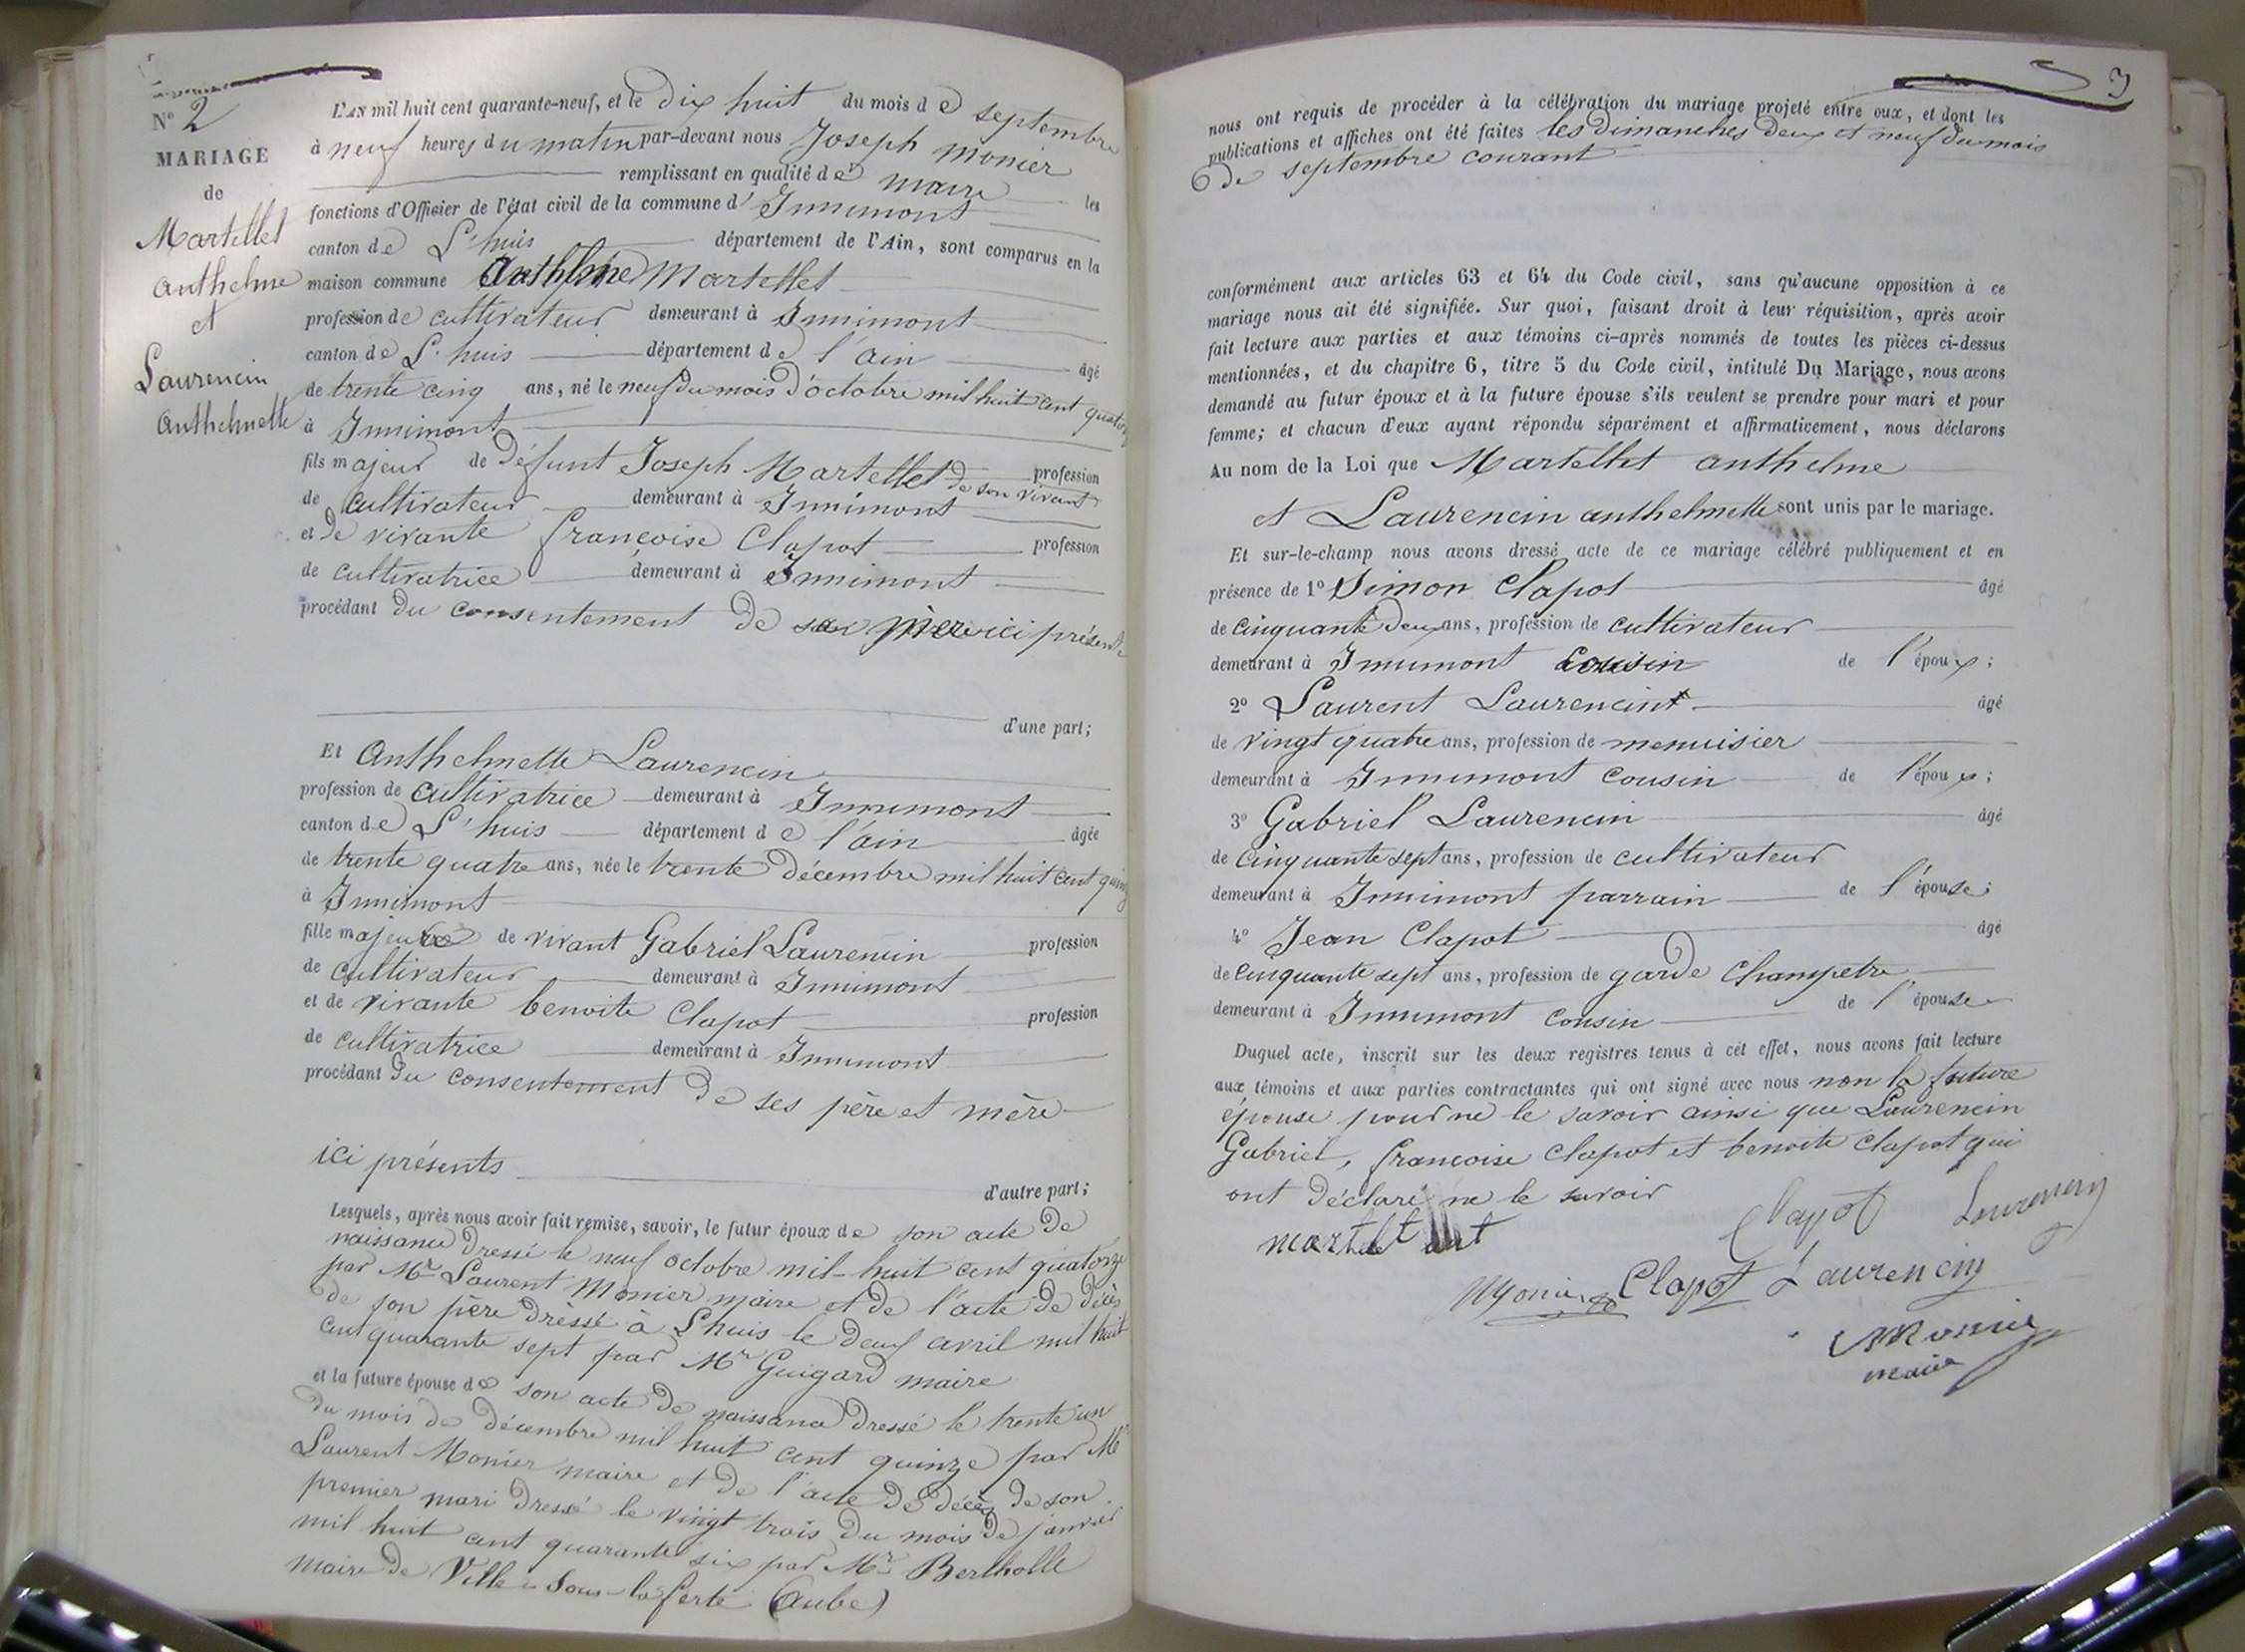 N° 2
MARIAGE
de
Martellet
anthelme
et
Laurencin
Anthelmette
L'AN mil huit cent quarante-neuf, et le dix huit du mois de septembre
à neuf heures du matin par-devant nous Joseph Monier
remplissant en qualité de maire les
fonctions d'Officier de l'état civil de la commune d' Innimont
canton de L'huis département de l'Ain, sont comparus en la
maison commune Anthelme Martellet
profession de cultivateur demeurant à Innimont
canton de L'huis département de l'ain âgé
de trente cinq ans, né le neuf du mois d'octobre mil huit cent quatorze
à Innimont
fils majeur de défunt Joseph Martellet de son vivant profession
de cultivateur demeurant à Innimont
et de vivante françoise Clapot profession
de cultivatrice demeurant à Innimont
procédant du consentement de sa mère ici présente
d'une part;
Et Anthelmette Laurencin
profession de cultivatrice demeurant à Innimont
canton de L'huis département de l'ain âgée
de trente quatre ans, née le trente décembre mil huit cent quinze
à Innimont
fille majeure de vivant Gabriel Laurencin profession
de cultivateur demeurant à Innimont
et de vivante benoite Clapot profession
de cultivatrice demeurant à Innimont
procédant du consentement de ses père et mère
ici présents
d'autre part;
Lesquels, après nous avoir fait remise, savoir, le futur époux de son acte de
naissance dressé le neuf octobre mil-huit cent quatorze
par Mr Laurent Monier maire et de l'acte de décès
de son père dressé à L'huis le deux avril mil huit
cent quarante sept par Mr Guigard maire
et la future épouse de son acte de naissance dressé le trente un
du mois de décembre mil huit cent quinze par Mr
Laurent Monier maire et de l'acte de décès de son
premier mari dressé le vingt trois du mois de janvier
mil huit cent quarante six par Mr Bertholle
maire de Ville-Sous-la ferté (Aube)
3
nous ont requis de procéder à la célébration du mariage projeté entre eux, et dont les
publications et affiches ont été faites les dimanches deux et neuf du mois
de septembre courant
conformément aux articles 63 et 64 du Code civil, sans qu'aucune opposition à ce
mariage nous ait été signifiée. Sur quoi, faisant droit à leur réquisition, après avoir
fait lecture aux parties et aux témoins ci-après nommés de toutes les pièces ci-dessus
mentionnées, et du chapitre 6, titre 5 du Code civil, intitulé Du Mariage, nous avons
demandé au futur époux et à la future épouse s'ils veulent se prendre pour mari et pour
femme; et chacun d'eux ayant répondu séparément et affirmativement, nous déclarons
Au nom de la Loi que Martellet anthelme
et Laurencin anthelmette sont unis par le mariage.
Et sur-le-champ nous avons dressé acte de ce mariage célébré publiquement et en
présence de 1° Simon Clapot âgé
de cinquante deux ans, profession de cultivateur
demeurant à Innimont cousin de l'époux;
2° Laurent Laurencin âgé
de vingt quatre ans, profession de menuisier
demeurant à Innimont cousin de l'époux;
3° Gabriel Laurencin âgé
de cinquante sept ans, profession de cultivateur
demeurant à Innimont parrain de l'épouse;
4° Jean Clapot âgé
de cinquante sept ans, profession de garde champetre
demeurant à Innimont cousin de l'épouse
Duquel acte, inscrit sur les deux registres tenus à cet effet, nous avons fait lecture
aux témoins et aux parties contractantes qui ont signé avec nous non la future
épouse pour ne le savoir ainsi que Laurencin
Gabriel, françoise Clapot et benoite Clapot qui
ont déclaré ne le savoir
Clapot Laurencin
Monier Clapot Laurencin
Monier
maire